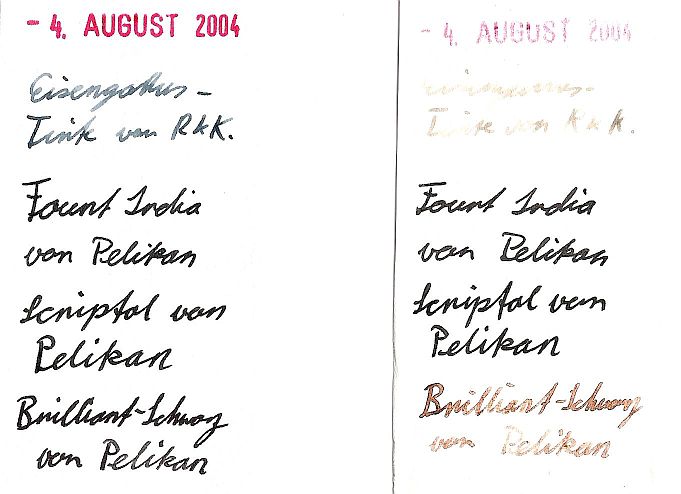 - 4. AUGUST 2004
Eisengallus-
Tinte von R&K.
Fount India
von Pelikan
Scriptol von
Pelikan
Brilliant-Schwarz
von Pelikan
- 4. AUGUST 2004
Tinte von R&K.
Fount India
von Pelikan
Scriptol von
Pelikan
Brilliant-Schwarz
von Pelikan